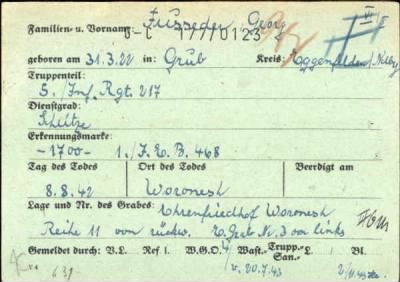 Familien- u. Vorname: Zusseder Georg
G-L 1777/0123
geboren am 31.3.22 in: Grub Kreis: Eggenfelden/Ndby
Truppenteil:
5./Inf. Rgt. 217
Dienstgrad:
Schütze
Erkennungsmarke:
-1700- 1./I.E.B. 468
Tag des Todes Ort des Todes Beerdigt am
8.8.42 Woronesh
Lage und Nr. des Grabes: Ehrenfriedhof Woronesh
Reihe 11 von rückw. E.Grab Nr. 3 von links
Gemeldet durch: V.L. Ref I. W.G.O. Wast.- Trupp.- L. Bl.
San.-
631 v. 20.7.43